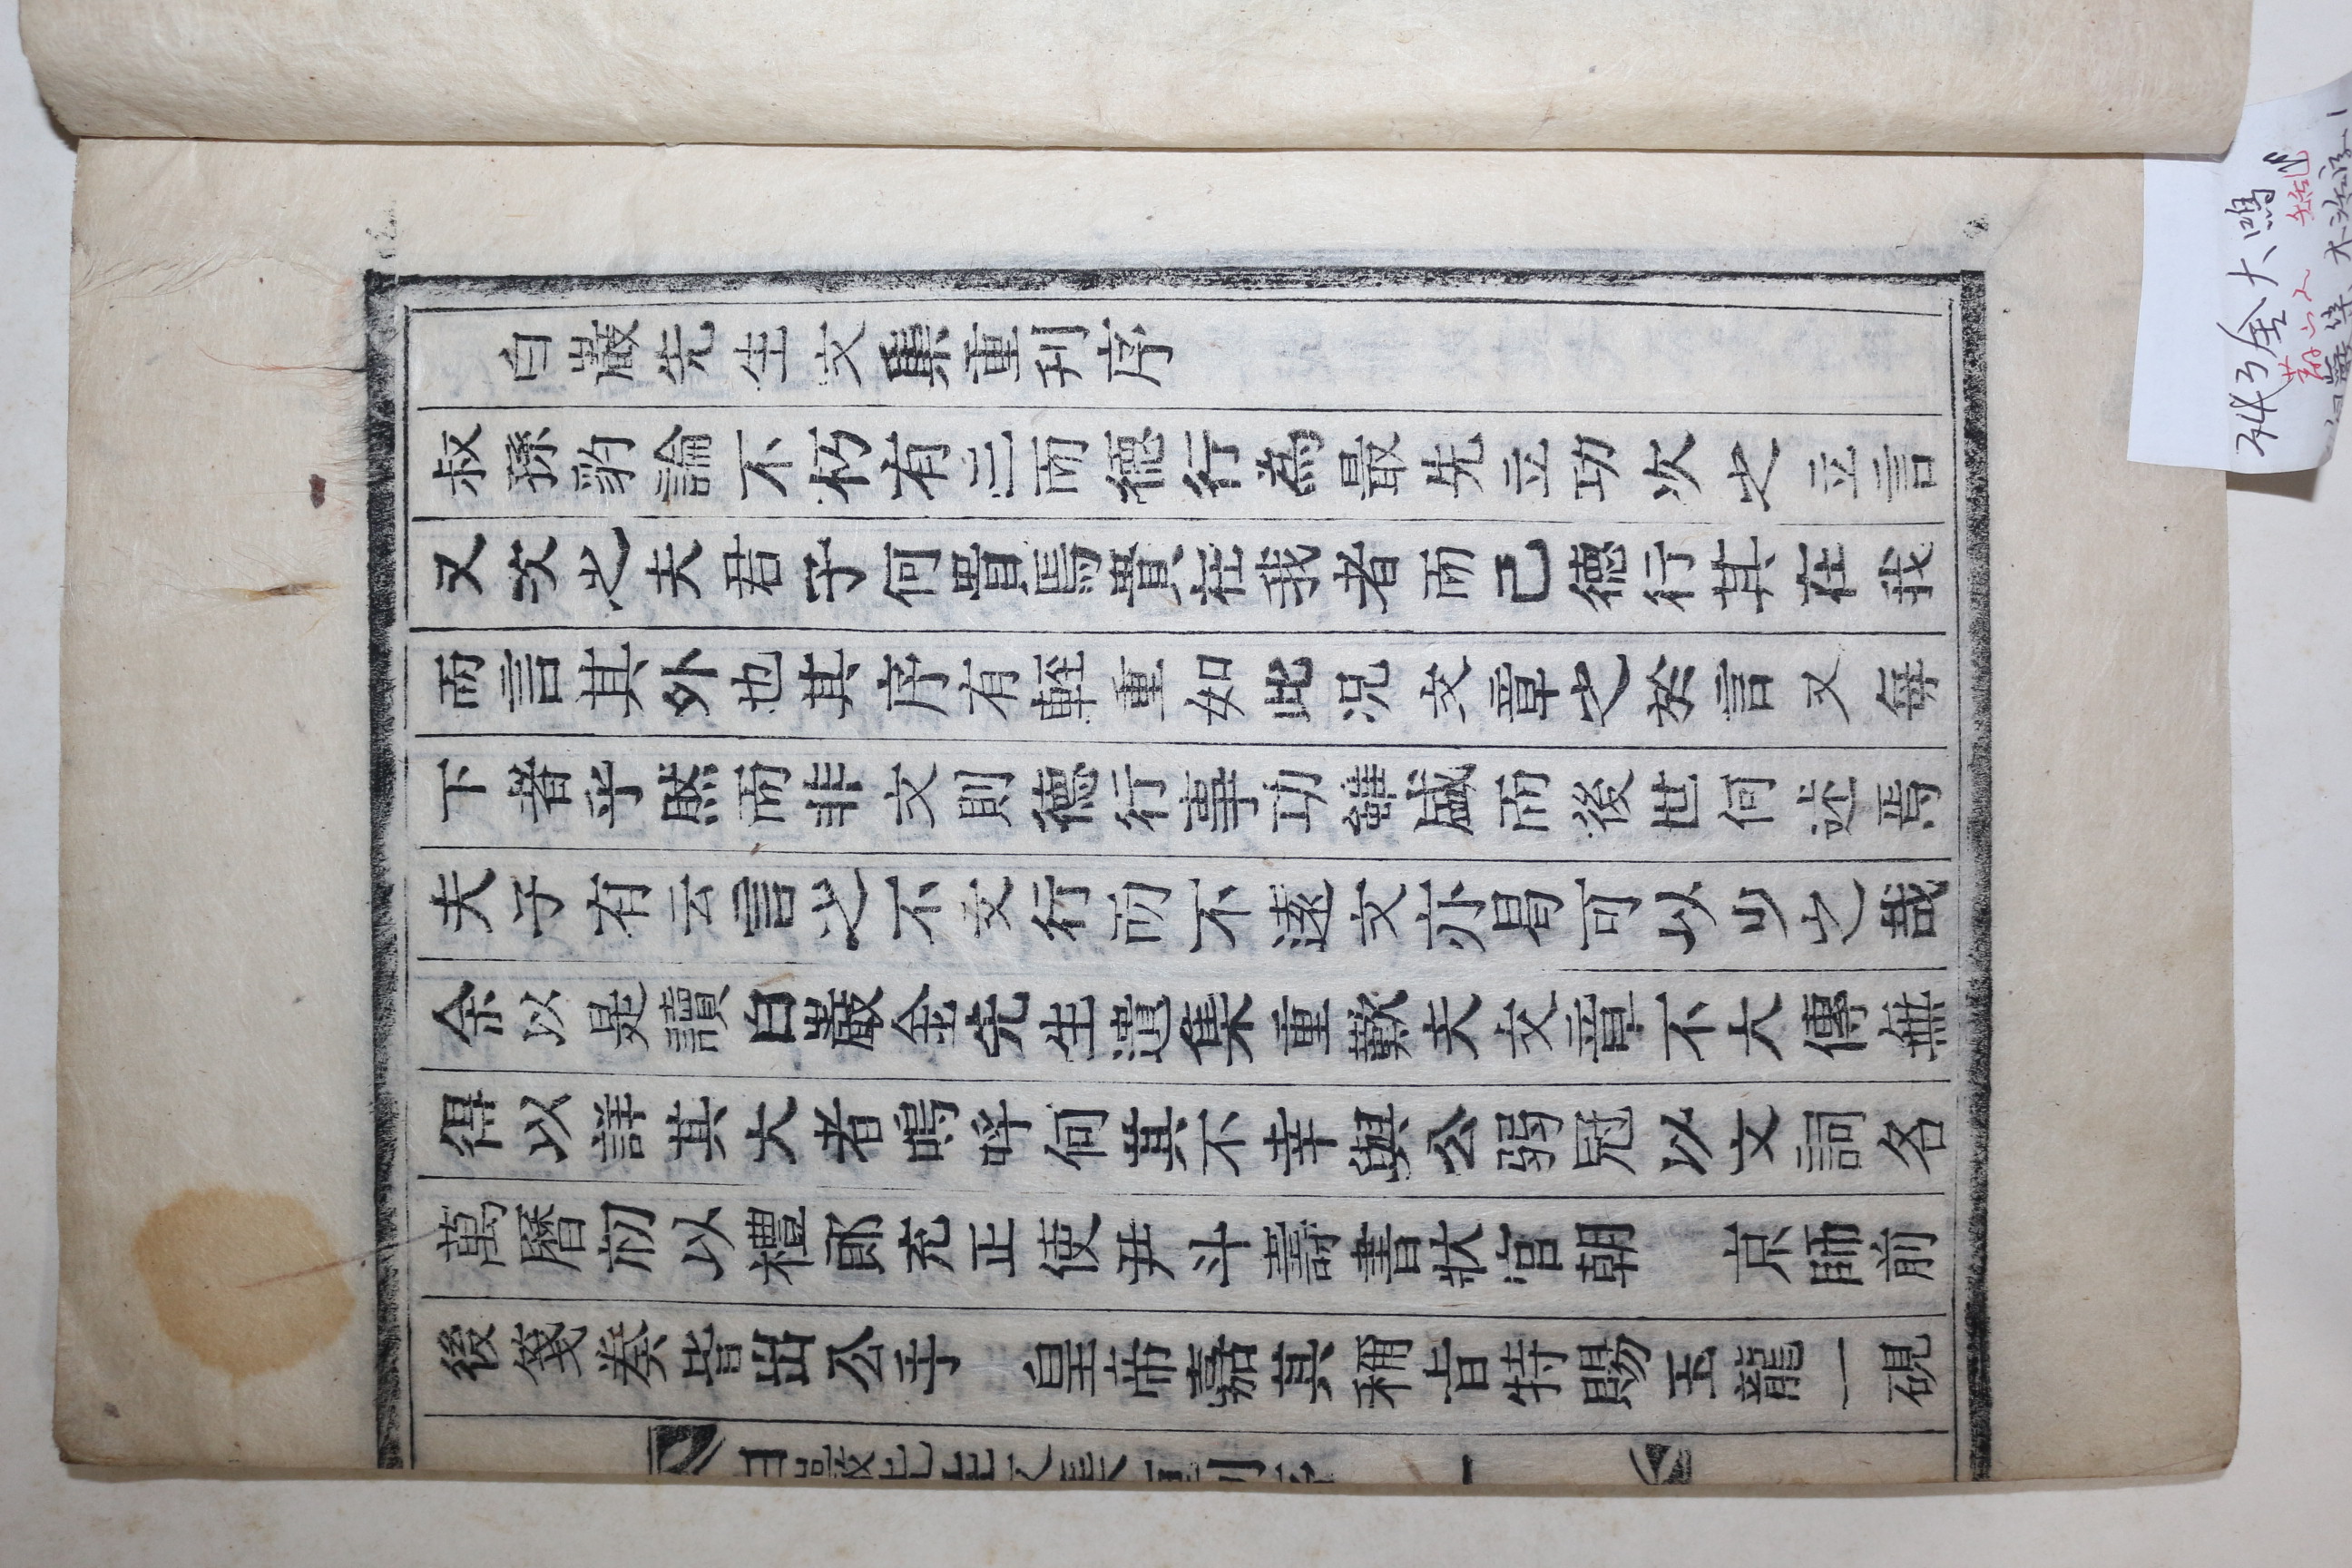 白巖先生文集重刊序
叔孫豹論不朽有三而德行為最先立功次之立言
又次之夫君子何貴焉貴在我者而己德行其在我
而言其外也其序有輕重如此况文章之於言又每
下者乎然而非文則德行事功雖盛而後世何述焉
夫子有云言之不文行而不遠文亦曷可以少之哉
余以是讀白巖金先生遺集重歎夫文章不大傳無
得以詳其大者嗚呼何其不幸與公弱冠以文詞名
萬曆初以禮郎充正使尹斗壽書狀官朝 京師前
後箋奏皆出公手 皇帝嘉其稱旨特賜玉龍一硯
白巖先生文集重刊序 一
金大鳴